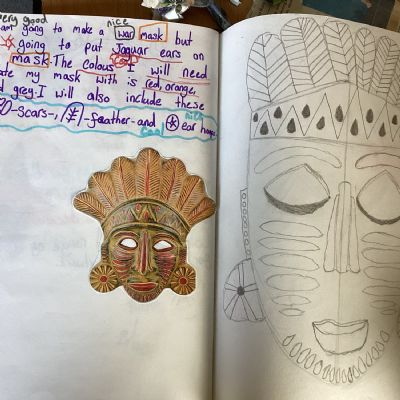 very good
am going to make a nice war mask but
going to put Jaguar ears on
mask. The colous I will need
ate my mask with is red, orange,
d grey. I will also include these
-scars-, -feather- and ear
cool